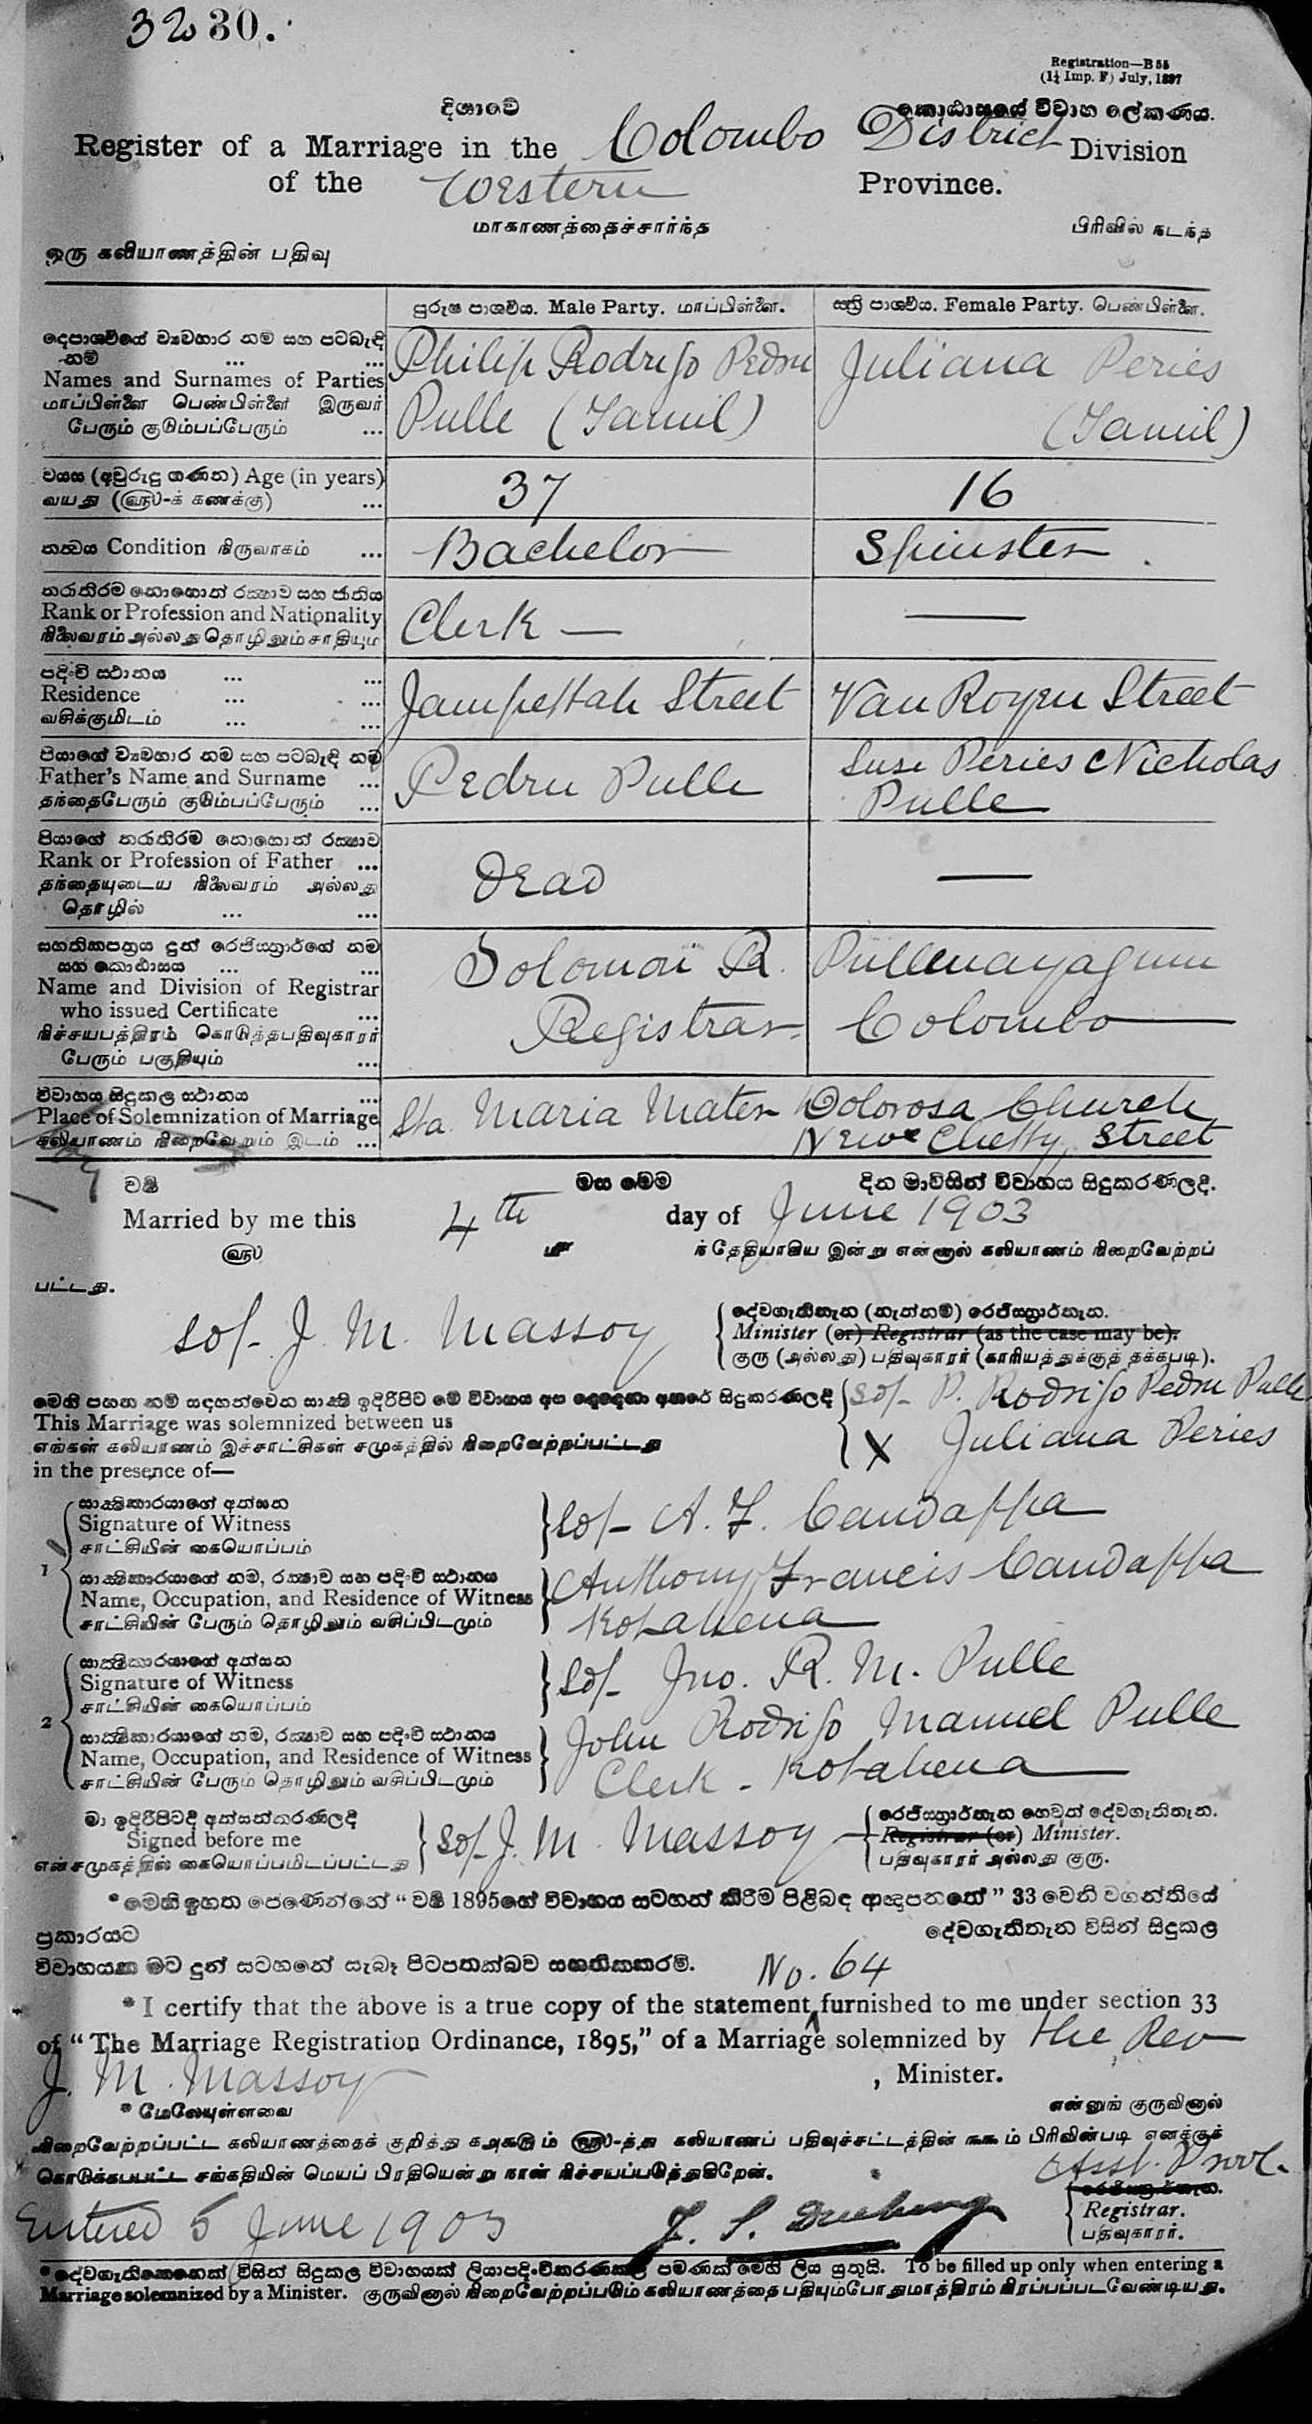 3230.
Registration—B 55
(1½ Imp. F) July, 1897
දිශාවේ කොඨාසයේ විවාහ ලේකණය.
Register of a Marriage in the Colombo District Division
of the Western Province.
மாகாணத்தைச்சார்ந்த பிரிவில் நடந்த
ஒரு கலியாணத்தின் பதிவு
පුරුෂ පාශවීය. Male Party. மாப்பிள்ளை. ස්ත්‍රී පාශවීය. Female Party. பெண்பிள்ளை.
දෙපාශවීයේ ව්‍යවහාර නම සහ පටබැඳි
නම් ... ...
Names and Surnames of Parties
மாப்பிள்ளை பெண்பிள்ளை இருவர்
பேரும் குடும்பப்பேரும் ...
Philip Rodrigo Pedru
Pulle (Tamil)
Juliana Peries
(Tamil)
වයස (අවුරුදු ගණන) Age (in years)
வயது (௵-க் கணக்கு) ...
37 16
තත්වය Condition நிருவாகம் ... Bachelor Spinster.
තරාතිරම නොහොත් රක්ෂාව සහ ජාතිය
Rank or Profession and Nationality
நிலைவரம் அல்லது தொழிலும் சாதியும்
Clerk — —
පදිංචි ස්ථානය ... ...
Residence ... ...
வசிக்குமிடம் ... ...
Jampettah Street Van Royen Street
පියාගේ ව්‍යවහාර නම සහ පටබැඳි නම
Father's Name and Surname ...
தந்தைபேரும் குடும்பப்பேரும் ...
Pedru Pulle
Suse Peries Nicholas
Pulle
පියාගේ තරාතිරම නොහොත් රක්ෂාව
Rank or Profession of Father ...
தந்தையுடைய நிலைவரம் அல்லது
தொழில் ... ...
Dead —
සහතිකපත්‍රය දුන් රෙජිස්ත්‍රාර්ගේ නම
සහ කොඨාසය ... ...
Name and Division of Registrar
who issued Certificate ...
நிச்சயபத்திரம் கொடுத்தபதிவுகாரர்
பேரும் பகுதியும் ...
Solomon R. Pullenayagum
Registrar. Colombo
විවාහය සිදුකල ස්ථානය ...
Place of Solemnization of Marriage
கலியாணம் நிறைவேறும் இடம் ...
Sta. Maria Mater Dolorosa Church
New Chetty Street
වර්‍ෂ මස මෙම දින මාවිසින් විවාහය සිදුකරණලදි.
Married by me this 4th day of June 1903
௵ ௴ ந் தேதியாகிய இன்று என்னால் கலியாணம் நிறைவேற்றப்
பட்டது.
sd/- J. M. Massoy
දේවගැතිතැන (නැත්නම්) රෙජිස්ත්‍රාර්තැන.
Minister (or) Registrar (as the case may be).
குரு (அல்லது) பதிவுகாரர் (காரியத்துக்குத் தக்கபடி).
මෙහි පහත නම් සඳහන්වෙන සාක්‍ෂි ඉදිරිපිට මේ විවාහය අප දෙදෙනා අතරේ සිදුකරණලදි
This Marriage was solemnized between us
எங்கள் கலியாணம் இச்சாட்சிகள் சமுகத்தில் நிறைவேற்றப்பட்டது
in the presence of—
sd/- P. Rodrigo Pedru Pulle
X Juliana Peries
1
සාක්‍ෂිකාරයාගේ අත්සන
Signature of Witness
சாட்சியின் கையொப்பம்
sd/- A. F. Candappa
සාක්‍ෂිකාරයාගේ නම, රක්ෂාව සහ පදිංචි ස්ථානය
Name, Occupation, and Residence of Witness
சாட்சியின் பேரும் தொழிலும் வசிப்பிடமும்
Anthony Francis Candappa
Kotahena
2
සාක්‍ෂිකාරයාගේ අත්සන
Signature of Witness
சாட்சியின் கையொப்பம்
sd/- Jno. R. M. Pulle
සාක්‍ෂිකාරයාගේ නම, රක්ෂාව සහ පදිංචි ස්ථානය
Name, Occupation, and Residence of Witness
சாட்சியின் பேரும் தொழிலும் வசிப்பிடமும்
John Rodrigo Manuel Pulle
Clerk - Kotahena
මා ඉදිරිපිටදී අත්සන්කරණලදි
Signed before me
என்சமுகத்தில் கையொப்பமிடப்பட்டது
sd/- J. M. Massoy
රෙජිස්ත්‍රාර්තැන හෙවත් දේවගැතිතැන.
Registrar (or) Minister.
பதிவுகாரர் அல்லது குரு.
* මෙහි ඉහත පෙණෙන්නේ “ වර්‍ෂ 1895හේ විවාහය සටහන් කිරීම පිළිබඳ ආඥාපනතේ ” 33 වෙනි වගන්තියේ
ප්‍රකාරයට දේවගැතිතැන විසින් සිදුකල
විවාහයක මට දුන් සටහනේ සැබෑ පිටපතක්බව සහතිකකරමි.
No. 64
* I certify that the above is a true copy of the statement ^ furnished to me under section 33
of “The Marriage Registration Ordinance, 1895,” of a Marriage solemnized by the Rev
J. M. Massoy , Minister.
* மேலேயுள்ளவை என்னுங் குருவினால்
நிறைவேற்றப்பட்ட கலியாணத்தைக் குறித்து ௧௮௯௫ம் ௵-த்து கலியாணப் பதிவுச்சட்டத்தின் ௩௩ம் பிரிவின்படி எனக்குக்
கொடுக்கப்பட்ட சங்கதியின் மெய்ப் பிரதியென்று நான் நிச்சயப்படுத்துகிறேன்.
Asst. Provl.
රෙජිස්ත්‍රාර්තැන.
Registrar.
பதிவுகாரர்.
Entered 5 June 1903
* දේවගැතිකෙනෙක් විසින් සිදුකල විවාහයක් ලියාපදිංචිකරණකල පමණක් මෙහි ලිය යුතුයි. To be filled up only when entering a
Marriage solemnized by a Minister. குருவினால் நிறைவேற்றப்படும் கலியாணத்தை பதியும்போதுமாத்திரம் நிரப்பப்படவேண்டியது.